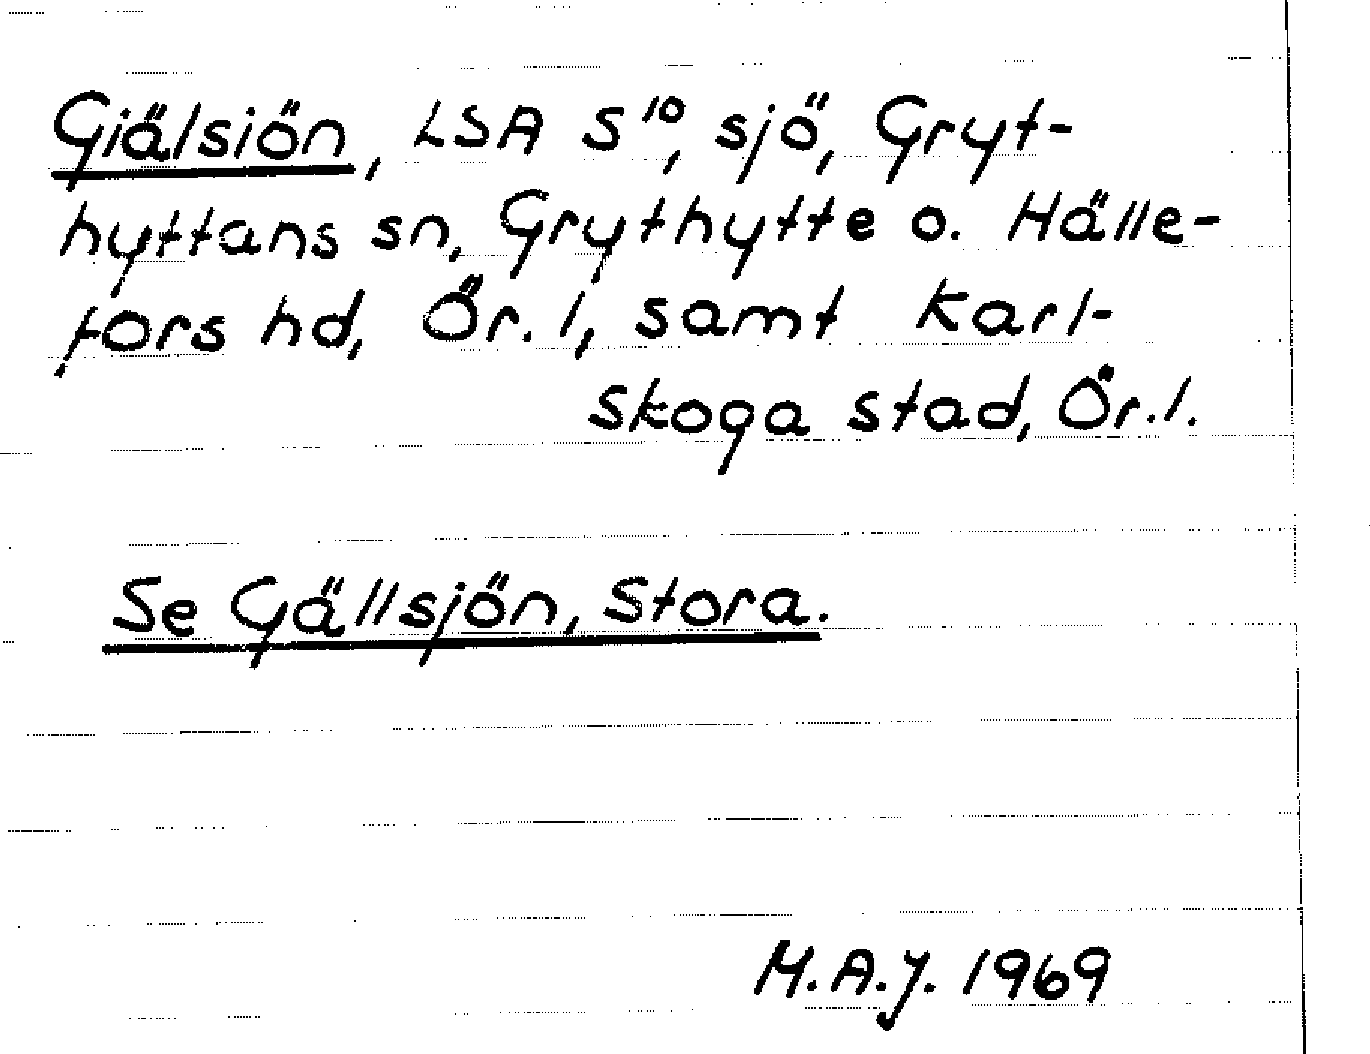 Giälsiön, LSA S¹⁰, sjö, Gryt-
hyttans sn, Grythytte o. Hälle-
fors hd, Ör. l, samt Karl-
skoga stad, Ör.l.
Se Gällsjön, Stora.
M.A.J. 1969